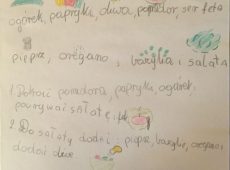 ogórek, papryka, oliwa, pomidor, ser feta
pieprz, oregano, bazylia i sałata
1. Pokroić pomidora, paprykę, ogórek,
porwać sałatę i
2. Do sałaty dodać: pieprz, bazylie, oregano i
dodać